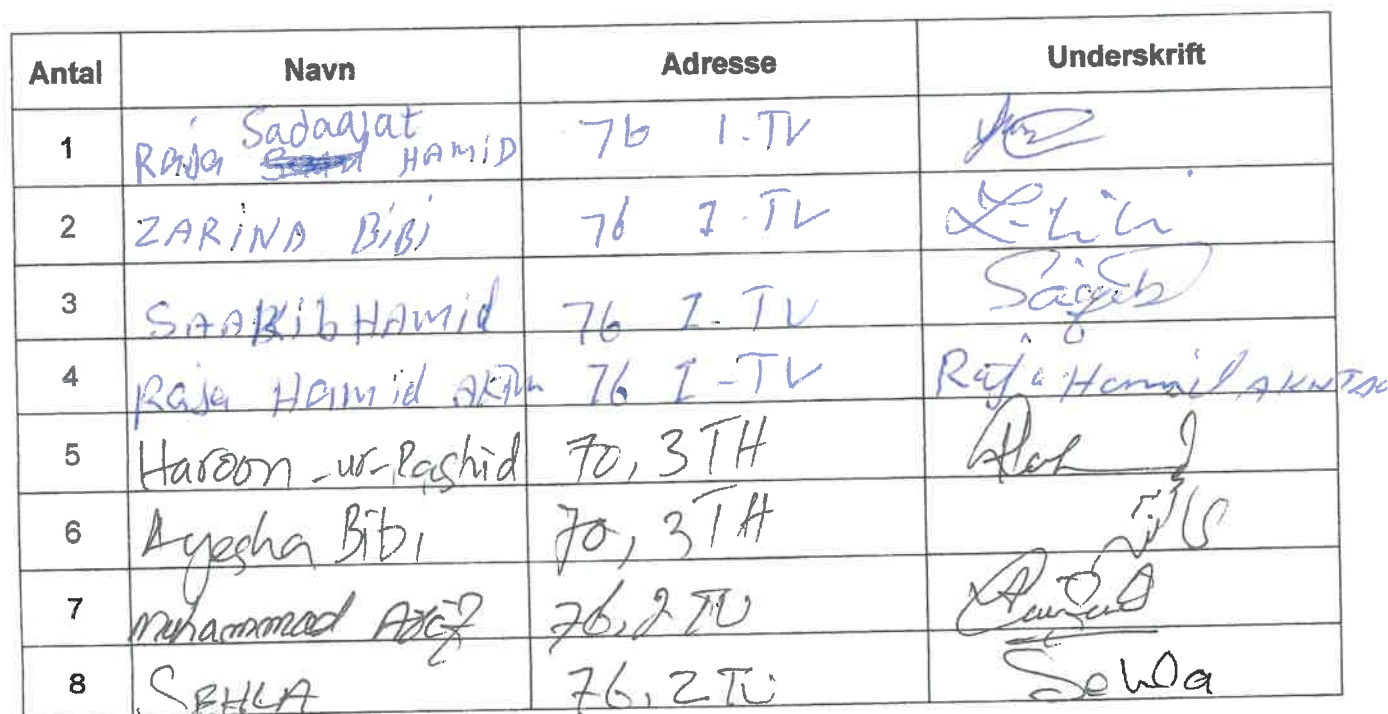 Antal Navn Adresse Underskrift
1 Raja Sadaaqat HAMID 76 1.TV
2 ZARINA BiBi 76 I.TV Z-bibi
3 SAAKib HAMid 76 I-TV Saqib
4 Raja Hamid 76 I-TV Raja Hamid
5 Haroon-ur-Rashid 70, 3TH
6 Ayesha Bibi 70, 3TH
7 Muhammad 76, 2 TV
8 SEHLA 76, 2 TV Sehla